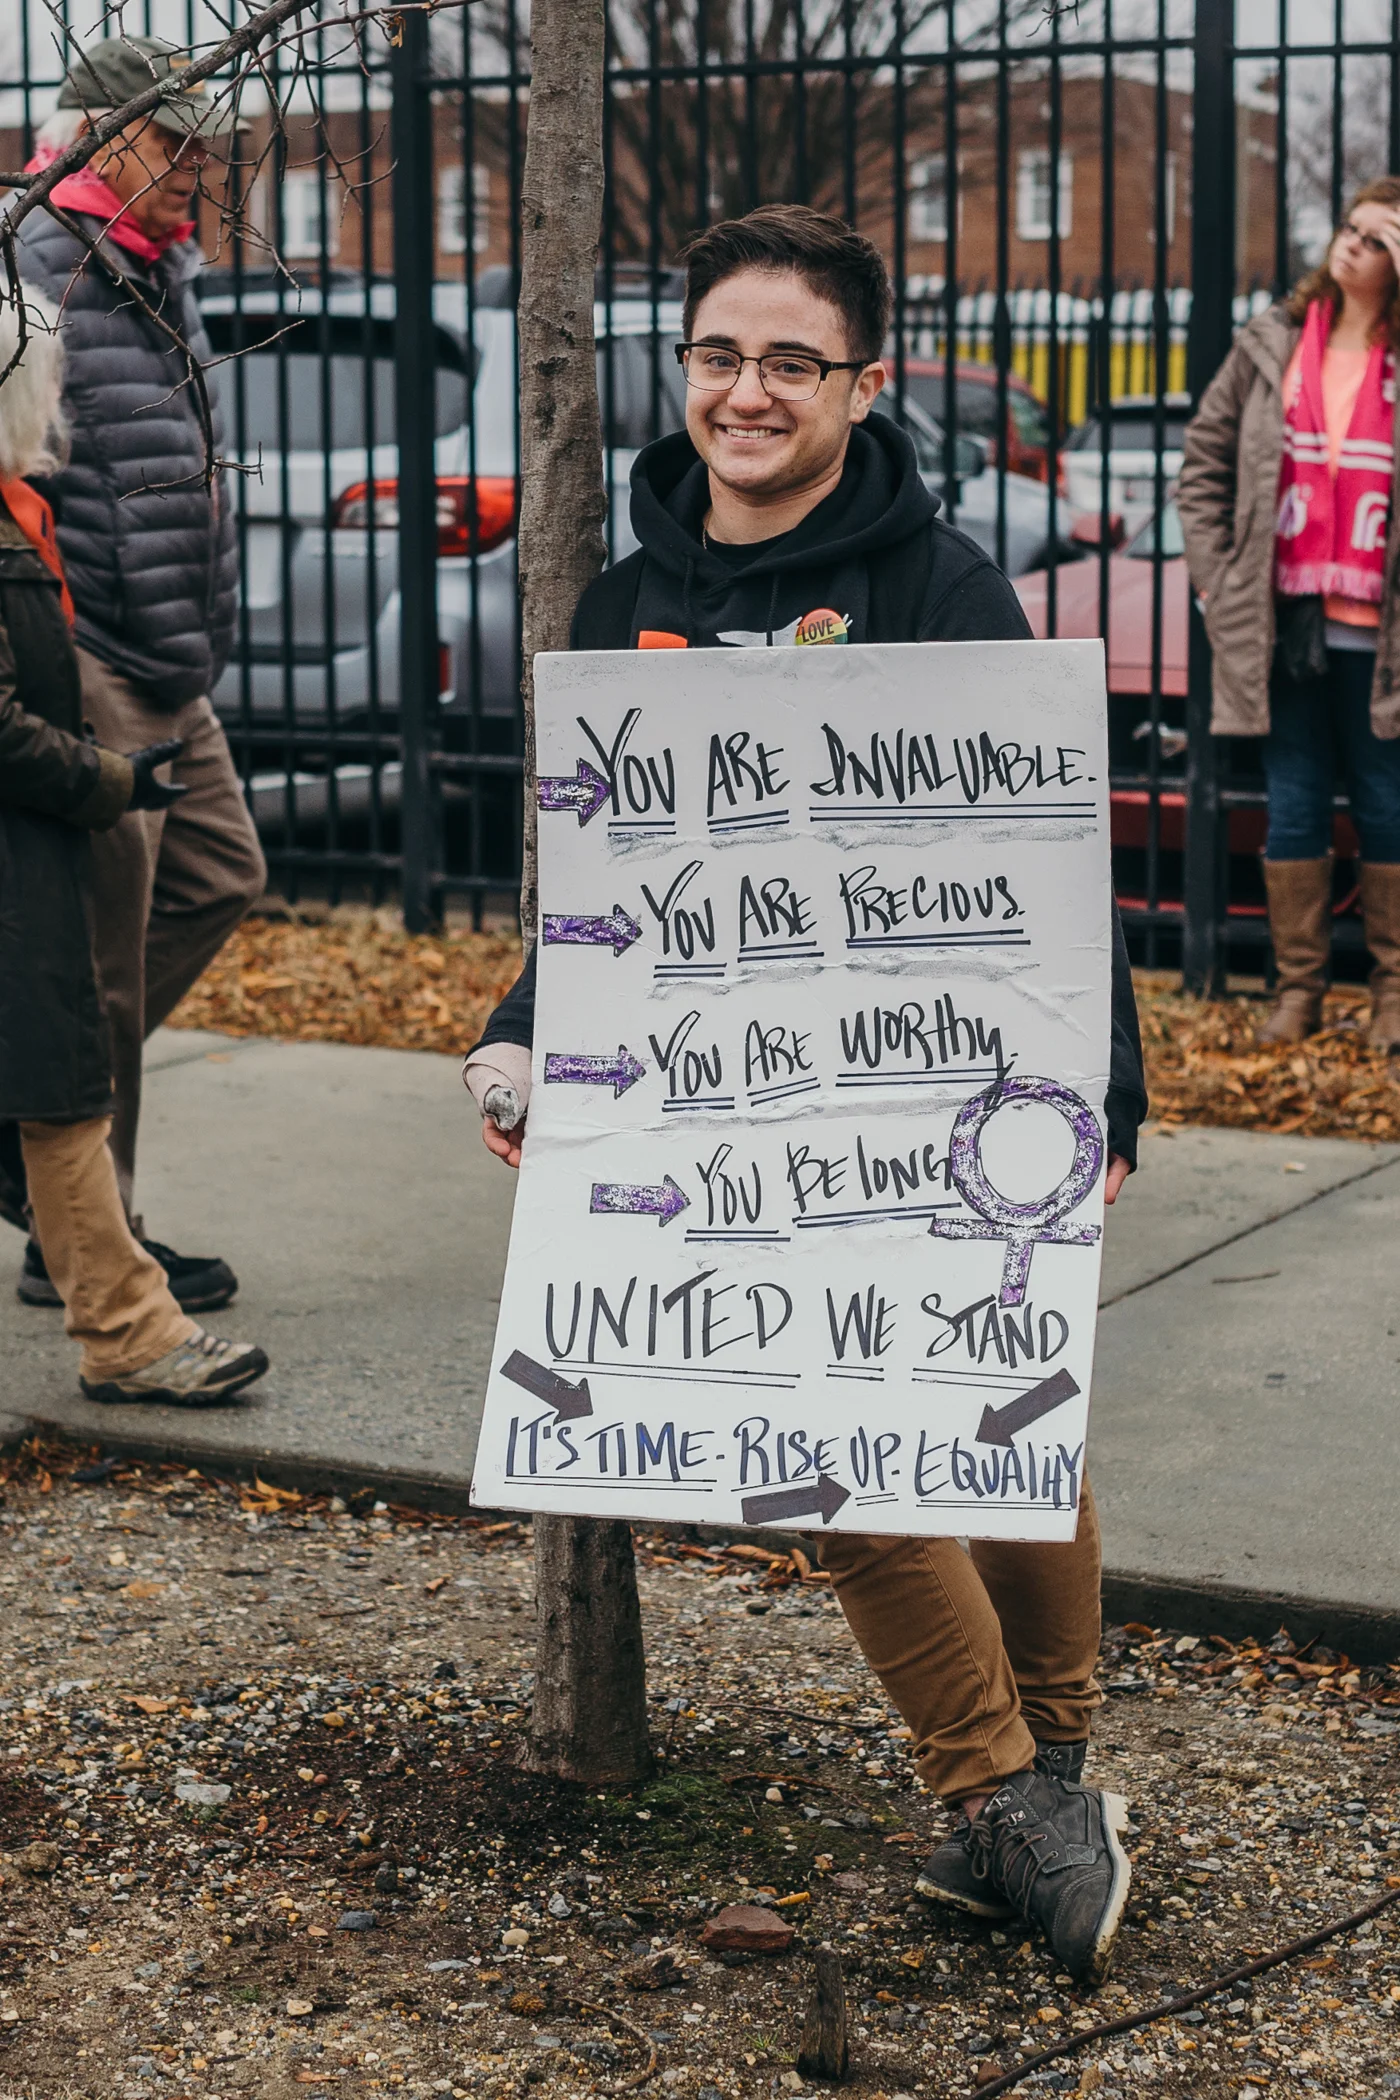 LOVE
YOU ARE INVALUABLE.
YOU ARE PRECIOUS.
YOU ARE WORThy.
YOU BElONG
UNITED WE STAND
IT'S TIME. RISE UP. EQUAlitY